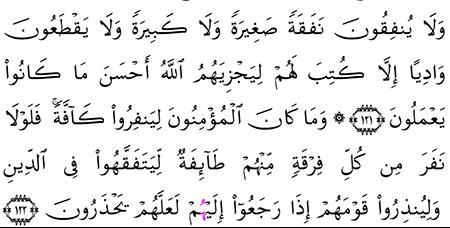 وَلَا يُنفِقُونَ نَفَقَةً صَغِيرَةً وَلَا كَبِيرَةً وَلَا يَقْطَعُونَ
وَادِيًا إِلَّا كُتِبَ لَهُمْ لِيَجْزِيَهُمُ اللَّهُ أَحْسَنَ مَا كَانُوا۟
يَعْمَلُونَ ﴿١٢١﴾ ۞ وَمَا كَانَ الْمُؤْمِنُونَ لِيَنفِرُوا۟ كَآفَّةً ۚ فَلَوْلَا
نَفَرَ مِن كُلِّ فِرْقَةٍ مِّنْهُمْ طَآئِفَةٌ لِّيَتَفَقَّهُوا۟ فِى الدِّينِ
وَلِيُنذِرُوا۟ قَوْمَهُمْ إِذَا رَجَعُوٓا۟ إِلَيْهِمْ لَعَلَّهُمْ يَحْذَرُونَ ﴿١٢٢﴾